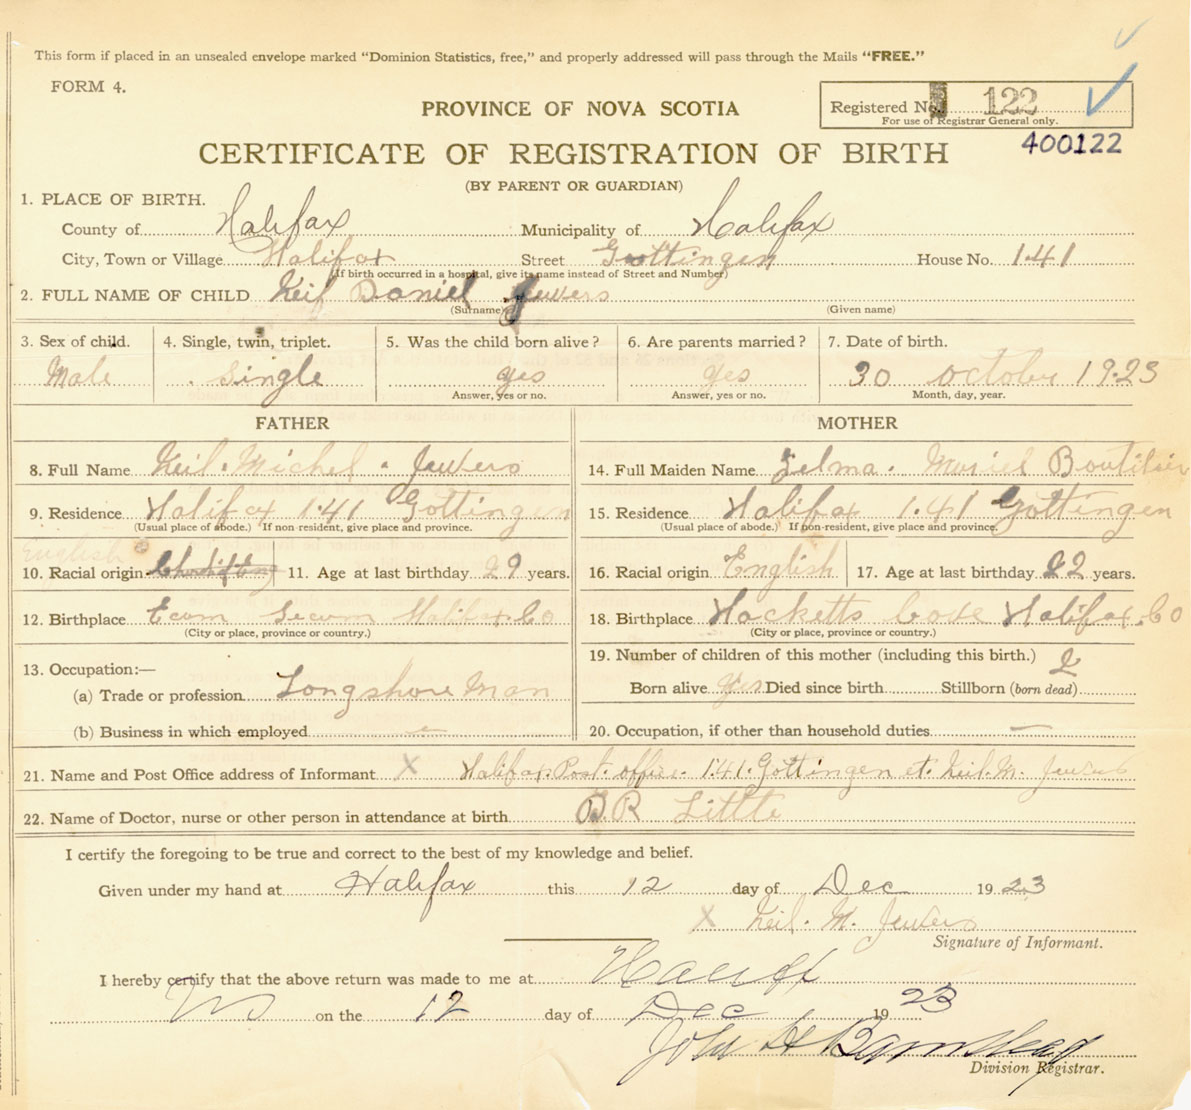 This form if placed in an unsealed envelope marked "Dominion Statistics, free," and properly addressed will pass through the Mails "FREE."
FORM 4.
PROVINCE OF NOVA SCOTIA
Registered No. 122
For use of Registrar General only.
400122
CERTIFICATE OF REGISTRATION OF BIRTH
(BY PARENT OR GUARDIAN)
1. PLACE OF BIRTH.
County of Halifax Municipality of Halifax
City, Town or Village Halifax Street Gottingen House No. 141
(If birth occurred in a hospital, give its name instead of Street and Number)
2. FULL NAME OF CHILD Neil Daniel Jewers
(Surname) (Given name)
3. Sex of child. 4. Single, twin, triplet. 5. Was the child born alive? 6. Are parents married? 7. Date of birth.
Male Single yes yes 30 october 1923
Answer, yes or no. Answer, yes or no. Month, day, year.
FATHER MOTHER
8. Full Name Neil. Michel. Jewers 14. Full Maiden Name Zelma. Muriel Boutilier
9. Residence Halifax 141 Gottingen 15. Residence Halifax 141 Gottingen
(Usual place of abode.) If non-resident, give place and province. (Usual place of abode.) If non-resident, give place and province.
English
10. Racial origin 11. Age at last birthday 29 years. 16. Racial origin English 17. Age at last birthday 22 years.
12. Birthplace Ecum Secum Halifax. Co 18. Birthplace Hacketts Cove Halifax. Co
(City or place, province or country.) (City or place, province or country.)
13. Occupation:— 19. Number of children of this mother (including this birth.) 2
(a) Trade or profession Longshore Man Born alive yes Died since birth Stillborn (born dead)
(b) Business in which employed — 20. Occupation, if other than household duties —
21. Name and Post Office address of Informant X Halifax. Post. office. 141. Gottingen st. Neil. M. Jewers
22. Name of Doctor, nurse or other person in attendance at birth D.R Little
I certify the foregoing to be true and correct to the best of my knowledge and belief.
Given under my hand at Halifax this 12 day of Dec 1923
X Neil. M. Jewers
Signature of Informant.
I hereby certify that the above return was made to me at Halifax
NS on the 12 day of Dec 1923
John H Barnstead
Division Registrar.